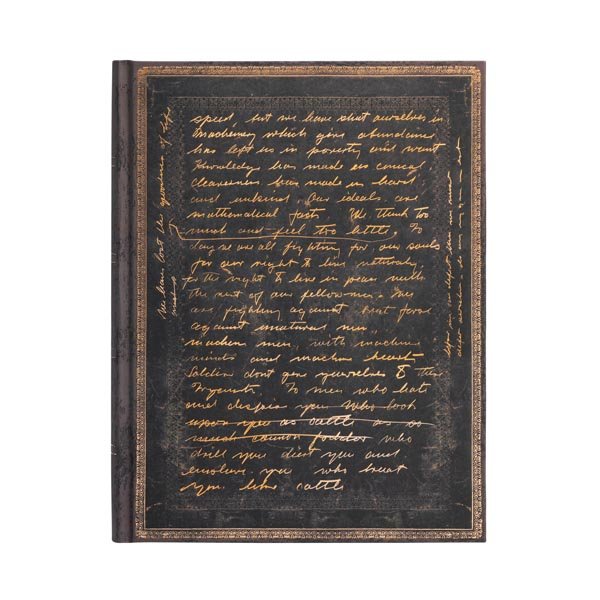 speed, but we have shut ourselves in
machinery which gives abundance
has left us in poverty and want
Knowledge has made us cynical
cleverness has made us hard
and unkind Our ideals are
mathematical facts We think too
much and feel too little, To
day we are all fighting for our souls
for our right to live naturaly
for the right to live in peace midst
the rest of our fellow men - We
are fighting against brut force
against unatural men
machin men, with machine
minds and machine hearts
dont give yourselves to these
Tryants. To men who hate
and despise you who look
upon you as cattle as so
much cannon fodder who
drill you diet you and
enslave you who treat
you like cattle
We have lost the of life